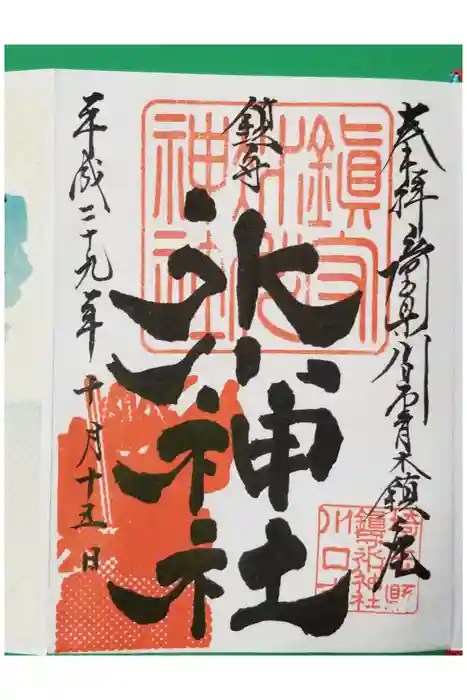 奉拝 埼玉県川口市青木鎮座
鎮守
氷川神社
平成二十九年十月十五日
鎮守氷川神社
埼玉県
鎮守氷川神社
川口市